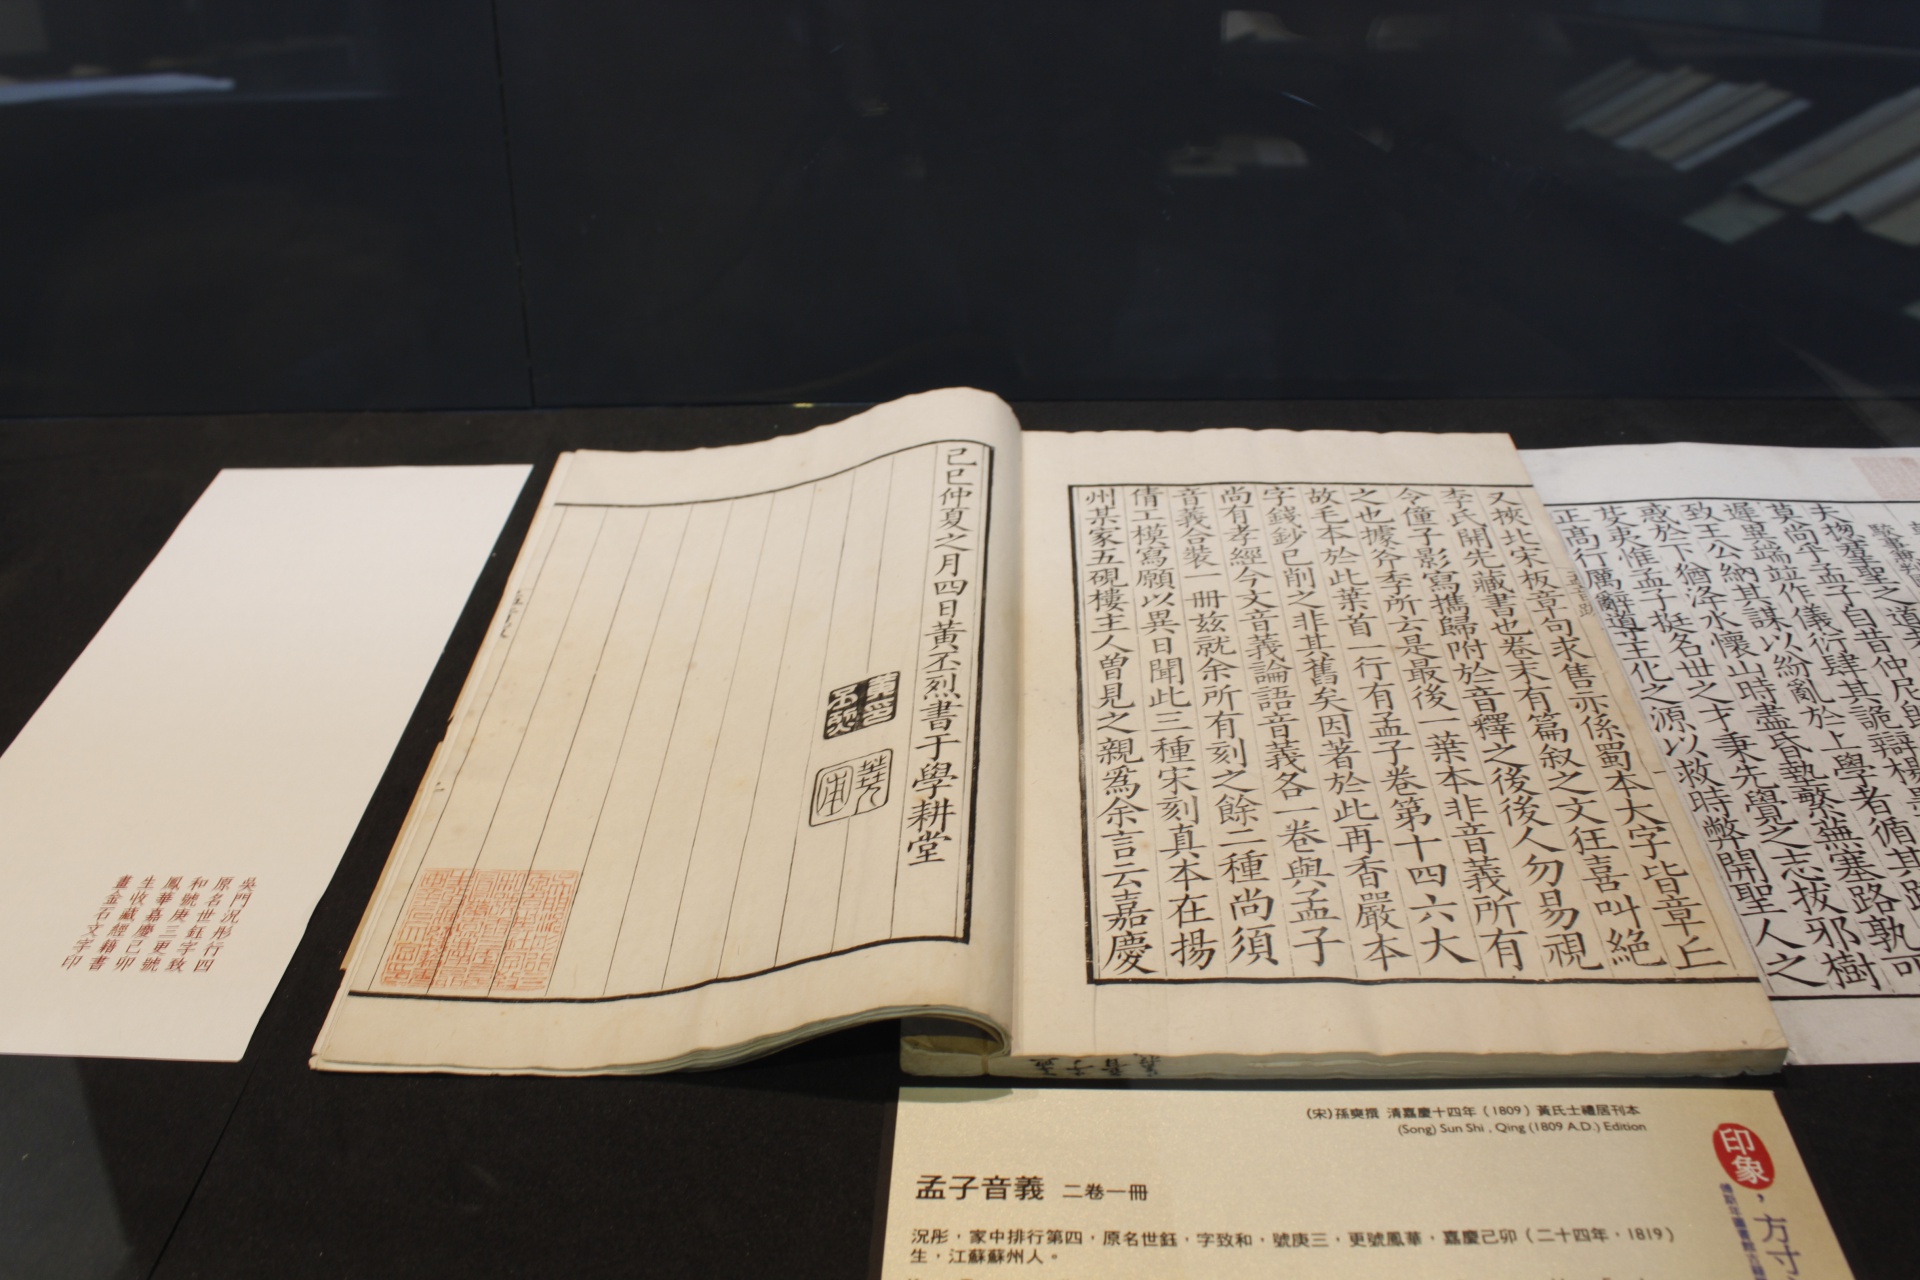 夫揔羣聖之道者
莫尚乎孟子自昔仲尼既
遲異端竝作儀衍肆其詭辯楊墨
致王公納其謀以紛亂於上學者循其踵
惑於下猶洚水懷山時盡昏墊繁蕪塞路孰可
芟夷惟孟子挺名世之才秉先覺之志拔邪樹
正高行厲辭導王化之源以救時弊開聖人之
又挾北宋板章句求售亦係蜀本大字皆章丘
李氏開先藏書也卷末有篇叙之文狂喜叫絕
令僮子影寫攜歸附於音釋之後後人勿易視
之也據斧季所云是最後一葉本非音義所有
故毛本於此葉首一行有孟子卷第十四六大
字錢鈔已削之非其舊矣因著於此再香嚴本
尚有孝經今文音義論語音義各一卷與孟子
音義合装一冊兹就余所有刻之餘二種尚須
倩工模寫願以異日聞此三種宋刻真本在揚
州某家五硯樓主人曽見之親為余言云嘉慶
己巳仲夏之月四日黃丕烈書于學耕堂
吳門況彤行四
原名世鈺字致
和號庚三更號
鳳華嘉慶己卯
生收藏經籍書
畫金石文字印
(宋)孫奭撰 清嘉慶十四年（1809）黃氏士禮居刊本
(Song) Sun Shi , Qing (1809 A.D.) Edition
孟子音義 二卷一冊
況彤，家中排行第四，原名世鈺，字致和，號庚三，更號鳳華，嘉慶己卯（二十四年，1819）
生，江蘇蘇州人。
印象，方寸